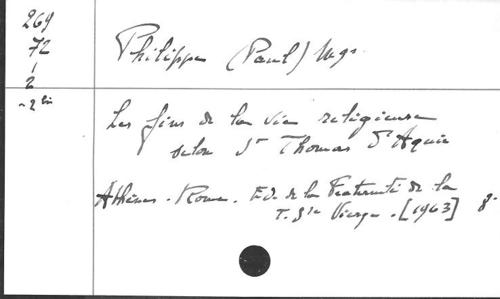 269
72
1
2
~2 bis
Philippe (Paul) Mgr.
Les fins de la vie religieuse
selon St Thomas d'Aquin
Athènes. Rome. Ed. de la Fraternité de la
T. Ste Vierge. [1963] 8°